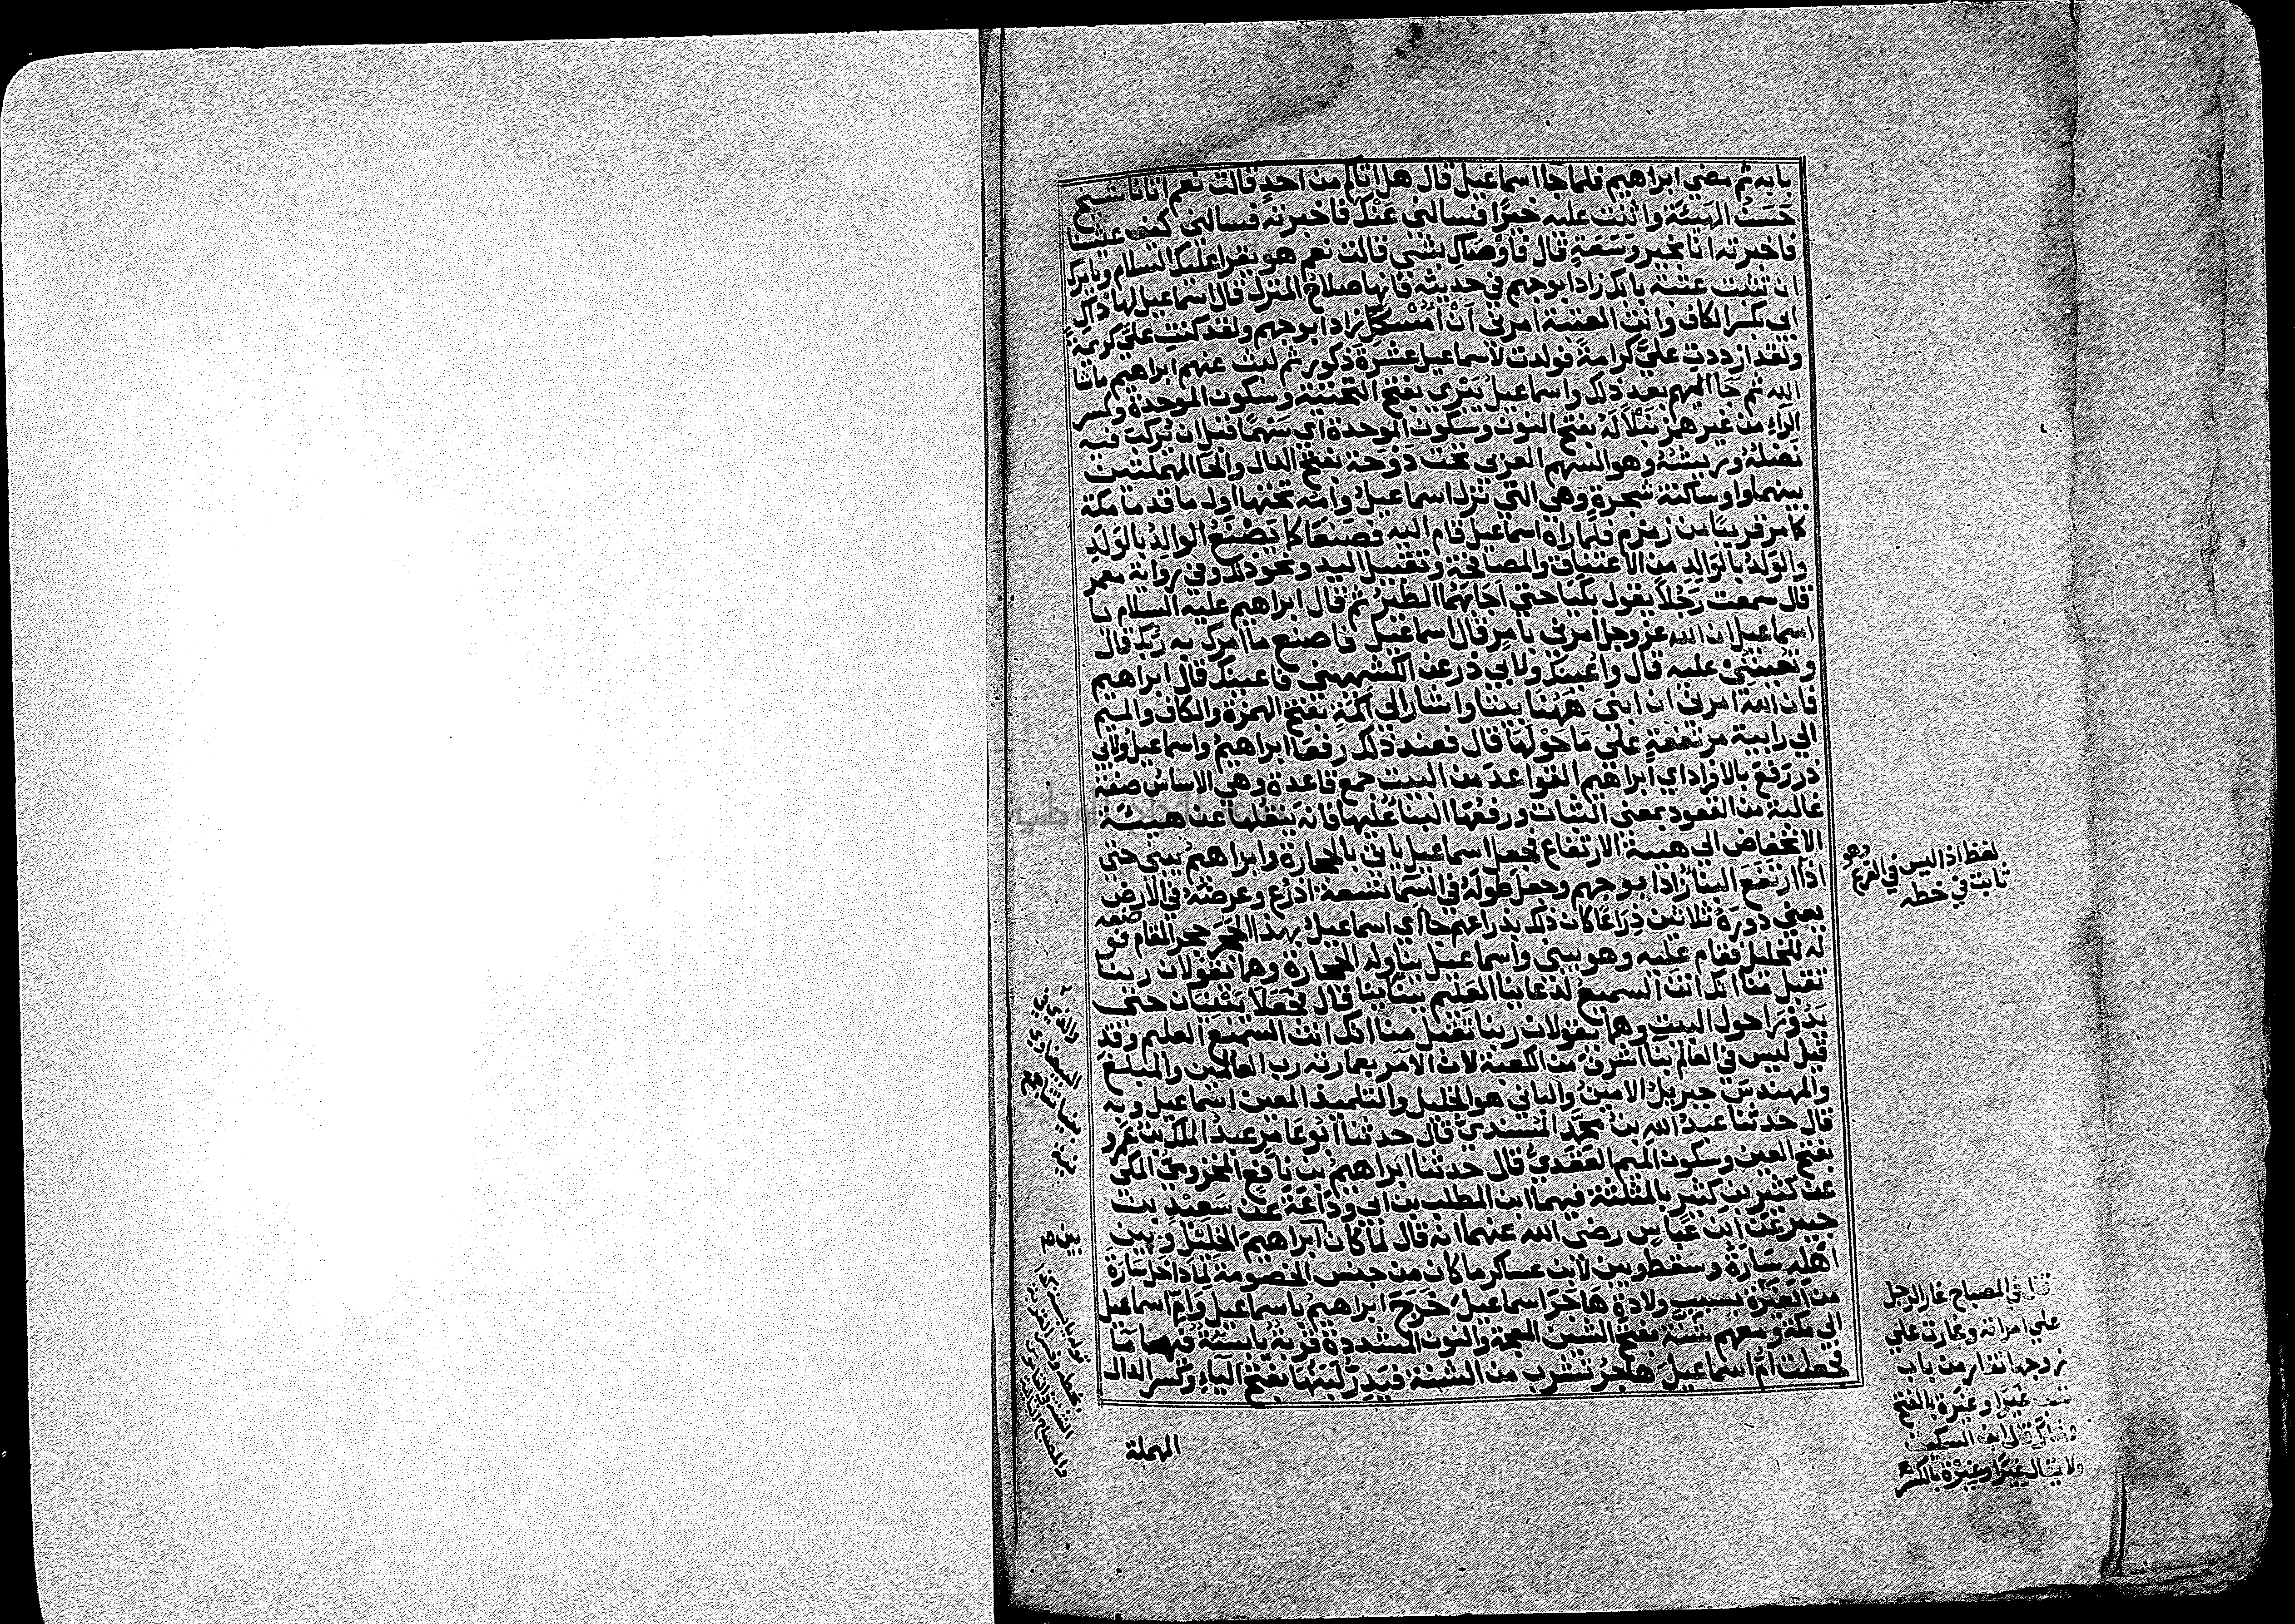 بابه ثم مضي ابراهيم فلما جا اسماعيل قال هل اتاكم من احدٍ قالت نعم اتانا شيخ
حَسَنُ الهَيئَة واثنت عليه خيرًا فسالني عَنْكَ فاخبرته فسالني كيف عيشنا
فاخبرته انا بخير وَسَعَةٍ قال فاَوْصَاكِ بشي قالت نعم هو يقرا عليك السلام ويامرك
ان تثبت عتبة بابك زاد ابو جهم في حديثه فانها صلاح المنزل قال اسماعيل لها ذاكِ
ابي بكسر الكاف وانتِ العتبة امرني اَنْ اُمْسِكَكِ زاد ابو جهم ولقد كنتِ عليَّ كريمةً
ولقد ازددتِ عليَّ كرامةً فولدت لاسماعيل عشرة ذكور ثم لبث عنهم ابراهيم ماشا
الله ثم جَا اليهم بعد ذلك واسماعيل يَبْرِي بفتح التحتية وسكون الموحدة وكسر
الرَاءِ من غير همز نَبْلاً لَهُ بفتح النون وسكون الموحدة اي سَهْمًا قبل ان يُركبَ فيه
نَصْلهُ وريشُهُ وهو السهم العربي تحت دَوْحَة بفتح الدال والحا المهملتين
بينهما واو ساكنة شجرة وهي التي نزل اسماعيل وامّه تحتها اول ما قدما مكة
كما مر قريبًا من زمزم فلما راه اسماعيل قام اليه فصَنَعَا كما يَصْنَعُ الوالِدُ بالوَلَدِ
والوَلدُ بالوَالِدِ من الاعتناق والمصافحة وتقبيل اليد ونحو ذلك وفي رواية معمر
قال سمعت رَجُلاً يقول بَكَيَا حتي اَجَابَهُمَا الطيرُ ثم قال ابراهيم عليه السلام يا
اسماعيل ان الله عز وجل امرني بامرٍ قال اسماعيل فاصنع ما امرك به رَبُّكَ قال
وتُعِينُنِي عليه قال واُعِينكَ ولابي ذر عن الكشميهني فاعينك قال ابراهيم
فان الله امرني ان ابنيَ هَهُنَا بيتا واشار الي اَكَمَةٍ بفتح الهمزة والكاف والميم
الي رابية مرتفعةٍ علي مَا حَوْلَهَا قال فعند ذلك رفعَا ابراهيمُ واسماعيل ولابي
ذر رَفَعَ بالافراد اي ابراهيم القواعدَ من البيت جمع قاعدة وهي الاساس صفة
غالبة من القعود بمعني الثبات ورفعُها البنا عليها فانه ينقلها عن هيئة
الانخفاض الي هيبة الارتفاع فجعل اسماعيل ياتي بالحجارة وابراهيم يبني حتي
اذا ارتفع البنا زاد ابو جهم وجعل طولَهُ في السَمَا تسعة اذرُع وعرضَهُ في الارض
يعني دَورَهُ ثلاثين ذِرَاعًا كان ذلك بذراعهم جَا اي اسماعيلُ بهذا الحَجَر حجر المقام فوضعه
له للخليل فقام عليه وهو يبني واسماعيل يناوله الحجارة وهما يقولان ربنا
تقبل منا انك انت السميع لدعاينا العليم ببنائنا قال فجعلا يَبْنِيَان حتي
يَدُورَا حول البيت وهما يقولان ربنا تقبل منا انك انت السميع العليم وقد
قيل ليس في العالم بنا اشرفَ من الكعبة لان الامر بعمارته رب العالمين والمبلغ
والمهندسَ جبريل الامينُ والباني هو الخليل والتلميذ المعين اسماعيل وبه
قال حدثنا عبدُ الله بن محمَّدٍ المُسْنديُّ قال حدثنا ابُو عَامِرٍ عبدُ الملك بن عَمرو
بفتح العين وسكون الميم العَقَدِيُّ قال حدثنا ابراهيمُ بن نافع المخزوميُّ المكي
عن كثِيرِ بن كثيرٍ بالمثلثة فيهما ابن المطلب بن ابي وَدَاعَة عَن سَعِيْدِ بن
جبير عَن ابن عَبّاسٍ رضي الله عنهما انه قال لما كان ابراهيمَ الخليل وبين
اَهْلِهِ سَارَةُ وسقط وبين لابن عساكر ما كان من جنس الخصومة لما داخل سَارَة
من الغَيْرَة بسبب ولادةِ هَاجَرَ اسماعيل خَرَجَ ابراهيمُ باسماعيلَ وَامّ اسماعيل
الي مكة ومعهم شنّة بفتح الشين المعجمة والنون المشددة قربةٌ يابسةٌ فيها مَا
فجعلت امُّ اسماعيلَ هاجرُ تشرب من الشنة فيَدِرُّ لَبَنُها بفتح اليَاءِ وكسر الدال
المهملة
لفظ اذا ليس في الفرع وهو
ثابت في خطه
والذي في
البيضاوي
بين ه
قال في المصباح غار الرجل
علي امراته وغارت علي
زوجها تغار من باب
تعب غَيرًا وغَيْرَة بالفتح
قال ابن السكيت
ولا يقال غِيرًا وغِيْرَة بالكسر